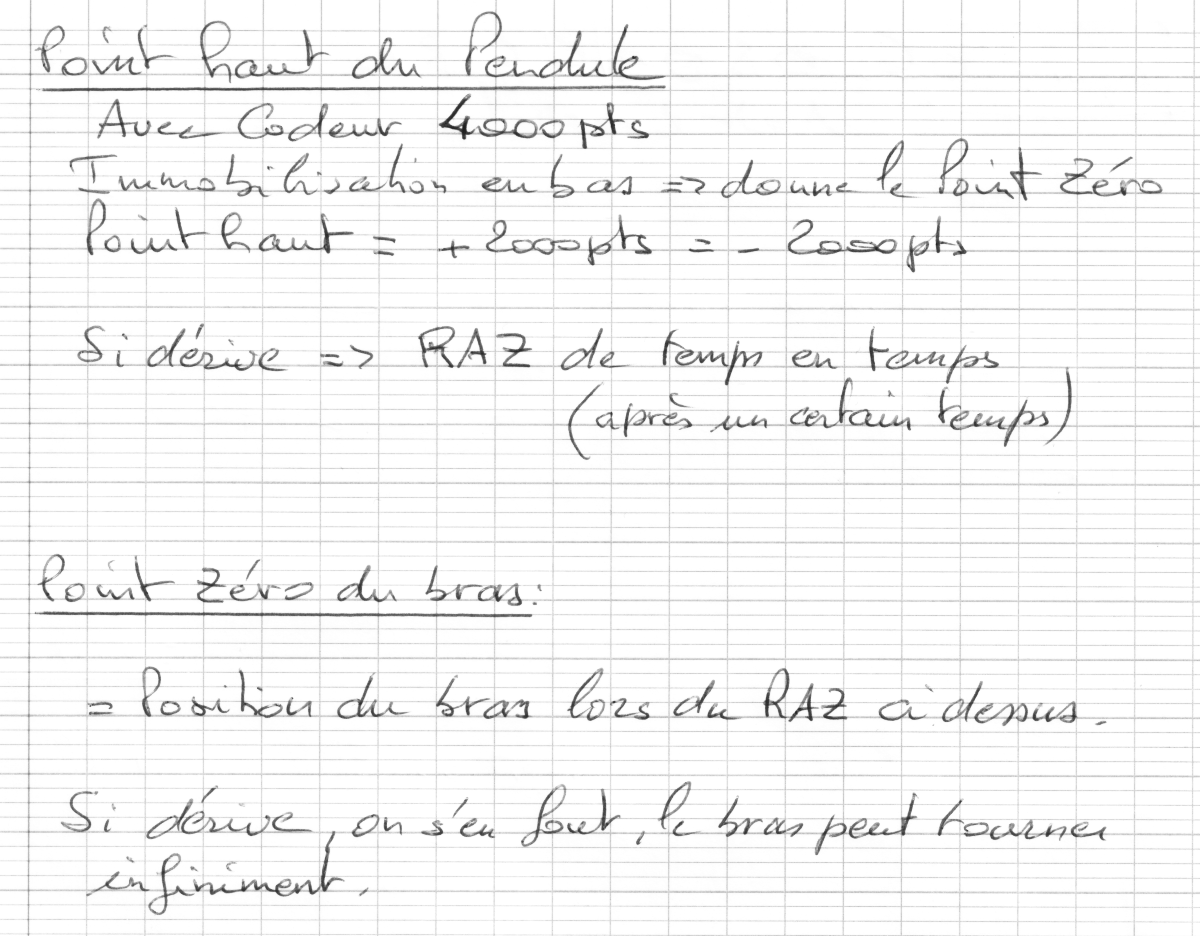 Point haut du Pendule
Avec Codeur 4000pts
Immobilisation en bas => donne le Point Zéro
Point haut = +2000pts = - 2000pts
Si dérive => RAZ de temps en temps
(après un certain temps)
Point Zéro du bras:
= Position du bras lors du RAZ ci dessus.
Si dérive, on s'en fout, le bras peut tourner
infiniment.